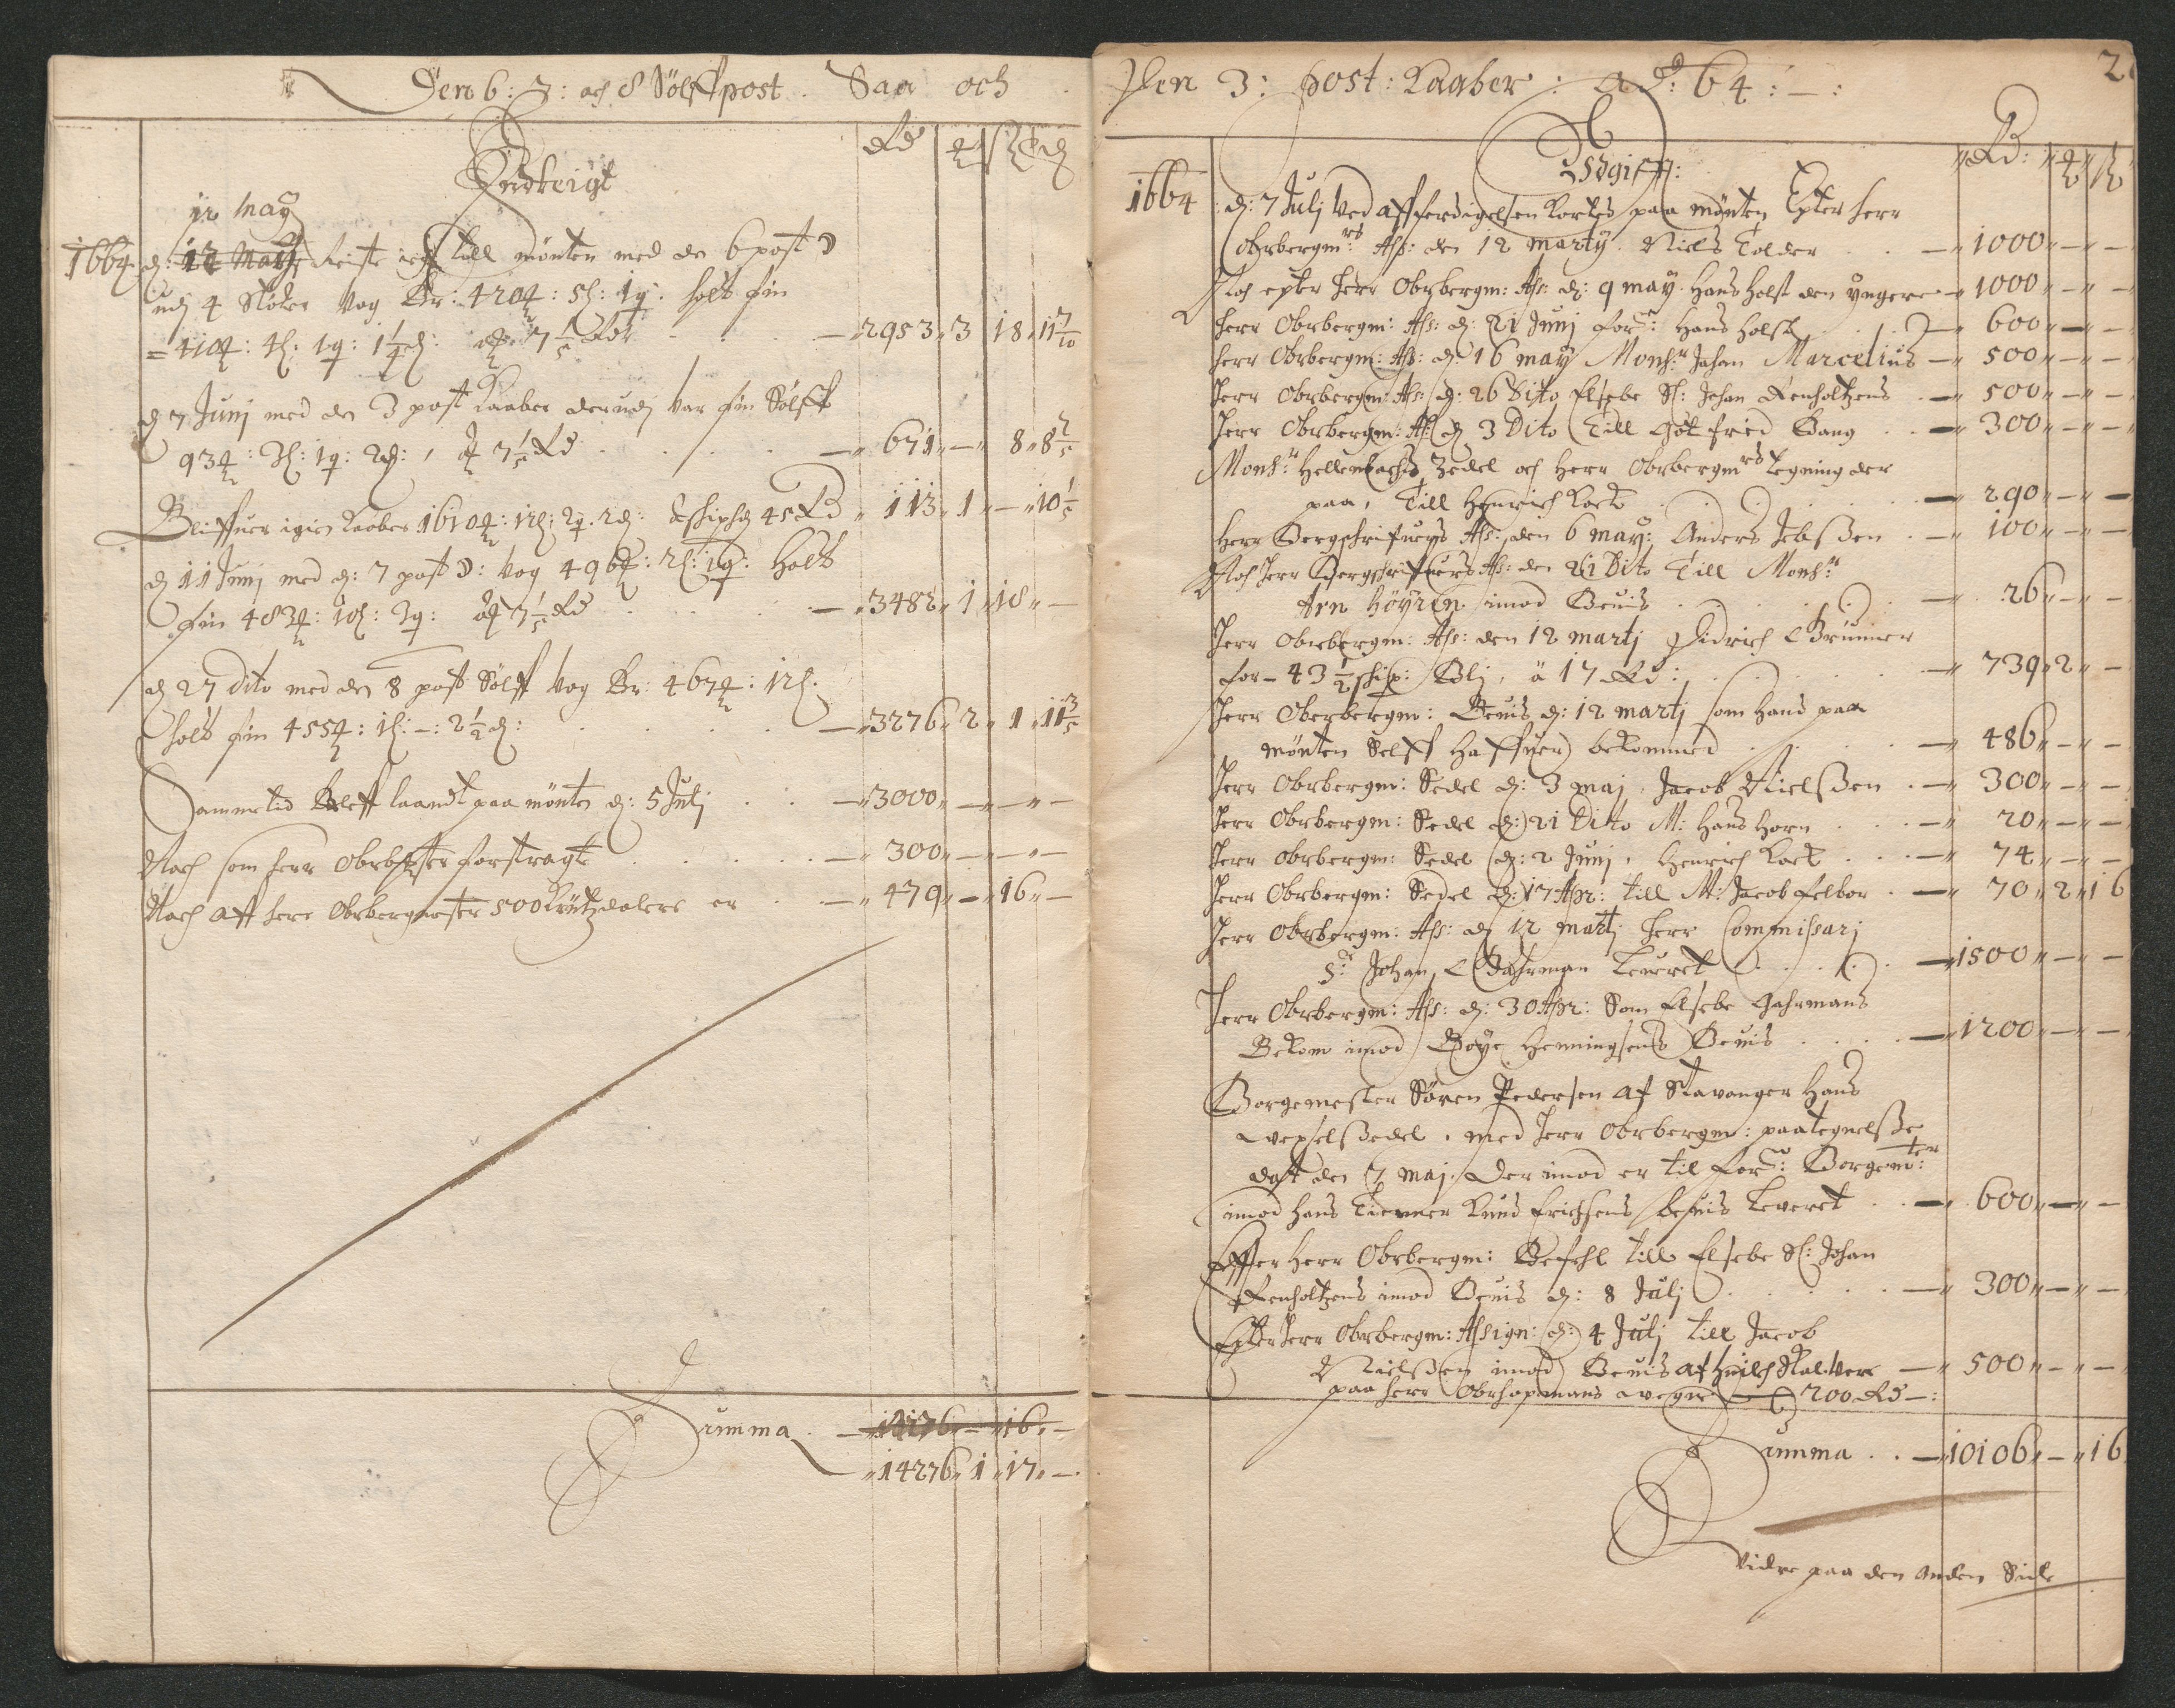 Den 6: 7: och 8 Sølff post. Saa och
Rd
Indteigt
12 May
1664 d: 12 Marty reiste ieg till mønten med den 6 post
udj 4 Støker vog Br: 420 : 5 : 1 : holt fin
= 410 : 4 : 1 : 1 1/4 : 7 1/5 Rdr — 2953 " 3 " 18 " 11 7/10
d 7 Junj med den 3 post Kaaber derudj var fin Sølff
93 : 3 : 1 : 2 : 7 1/5 Rd — 671 " — " 8 " 8 2/5
Bliffuer igien Kaaber 1610 : 12 : 2 : 2 : 45 Rd " 113 " 1 " — " 10 1/5
d 11 Junj med d: 7 post : vog 496 : 2 : 1 : holt
fin 483 : 10 : 3 : 7 1/5 Rd — " 3482 " 1 " 18 " —
d 27 dito med den 8 post Sølff vog Br: 467 : 12 :
holt fin 455 : 1 : — : 2 1/2 : — 3276 " 2 " 1 " 11 3/5
Sammetid Bleff laandt paa mønten d: 5 Julj — " 3000 " — " — " —
Noch som herr Obrb — " 300 " — " — " —
Noch aff herr Obrbergmester 500 er — " 479 " — " 16 " —
Summa — 16 " —
" 14276 " 1 " 17 " —
Den 3: post: Kaaber: Ao: 64: — :
2
Udgifft:
Rd:
1664 d: 7 Julj ved affferdigelsen Kortes paa mønten Epter herr
Obrbergmrs: Ass: den 12 marty. Niels Tolder — 1000 " — " —
Noch epter herr Obrbergm: Ass: d: 9 may. Hans Holst den yngere — 1000 " — " —
herr Obrbergm: Ass: d: 21 Junj for: Hans Holst — 600 " — " —
herr Obrbergm: Ass: d: 16 may Monsr: Johan Marcelius — 500 " — " —
herr Obrbergm: Ass: d: 26 Dito Elsebe Sl: Johan Renholtzens — 500 " — " —
herr Obrbergm: Ass: d 3 Dito Till Gotfried Bang — 300 " — " —
Monsr: Zedel och herr Obrbergmrs Tegning der
paa, Till Henrich Kock — 290 " — " —
herr Bergschrifuers Ass: den 6 may: Anders Jebsßen — 100 " — " —
Noch herr Bergschriffuers Ass: den 21 Dito Till Monsr:
Arn Høyren imod Beuis — 26 " — " —
herr Obrbergm: Ass: den 12 martj Didrich Brunner
for — 43 1/2 schip: Blj, à 17 Rd: — 739 " 2 " —
herr Oberbergm: Beuis d: 12 martj som hand paa
mønten Selff haffuer bekommed — 486 " — " —
herr Obrbergm: Sedel d: 3 maj. Jacob Nielsßen — 300 " — " —
herr Obrbergm: Sedel d: 21 Ditto M: Hans Horn — 20 " — " —
herr Obrbergm: Sedel d: 2 Junj, Henrich Kock — 74 " — " —
herr Obrbergm: Sedel d: 17 Apr: till M: Jacob Felbor — 70 " 2 " 16
herr Obrbergm: Ass: d 12 martj herr Commissarj
Sr: Johan Gahrman Leueret — 1500 " — " —
herr Obrbergm: Ass: d: 30 Apr: Som Elsebe Gahrmans
Bekom imod Boye Henningsens Beuis — 1200 " — " —
Borgemester Søren Pedersen af Stavanger hans
Wexelßedel, med herr Obrbergm: paategnelße
dat den 7 maj. Der imod er til for: Borgemter:
imod hans Tienner Knud Erichsens beuis Leveret — 600 " — " —
Effter herr Obrbergm: Befehl till Elsebe Sl: Johan
Renholtzens imod Beuis d: 8 Julj — 300 " — " —
Epter herr Obrbergm: Assign: d: 4 Julj till Jacob
Nielsßen imod Beuis af — " 500 " — " —
paa herr wegne — 200 Rd — :
Summa — 10106 " — " 16
Vidre paa den anden Side